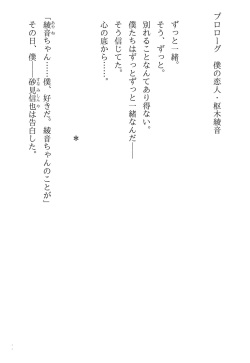 プロローグ　僕の恋人・枢木綾音
ずっと一緒。
そう、ずっと。
別れることなんてあり得ない。
僕たちはずっとずっと一緒なんだ――
そう信じてた。
心の底から……。
＊
「綾音ちゃん……僕、好きだ。綾音ちゃんのことが」
その日、僕――砂見信也は告白した。